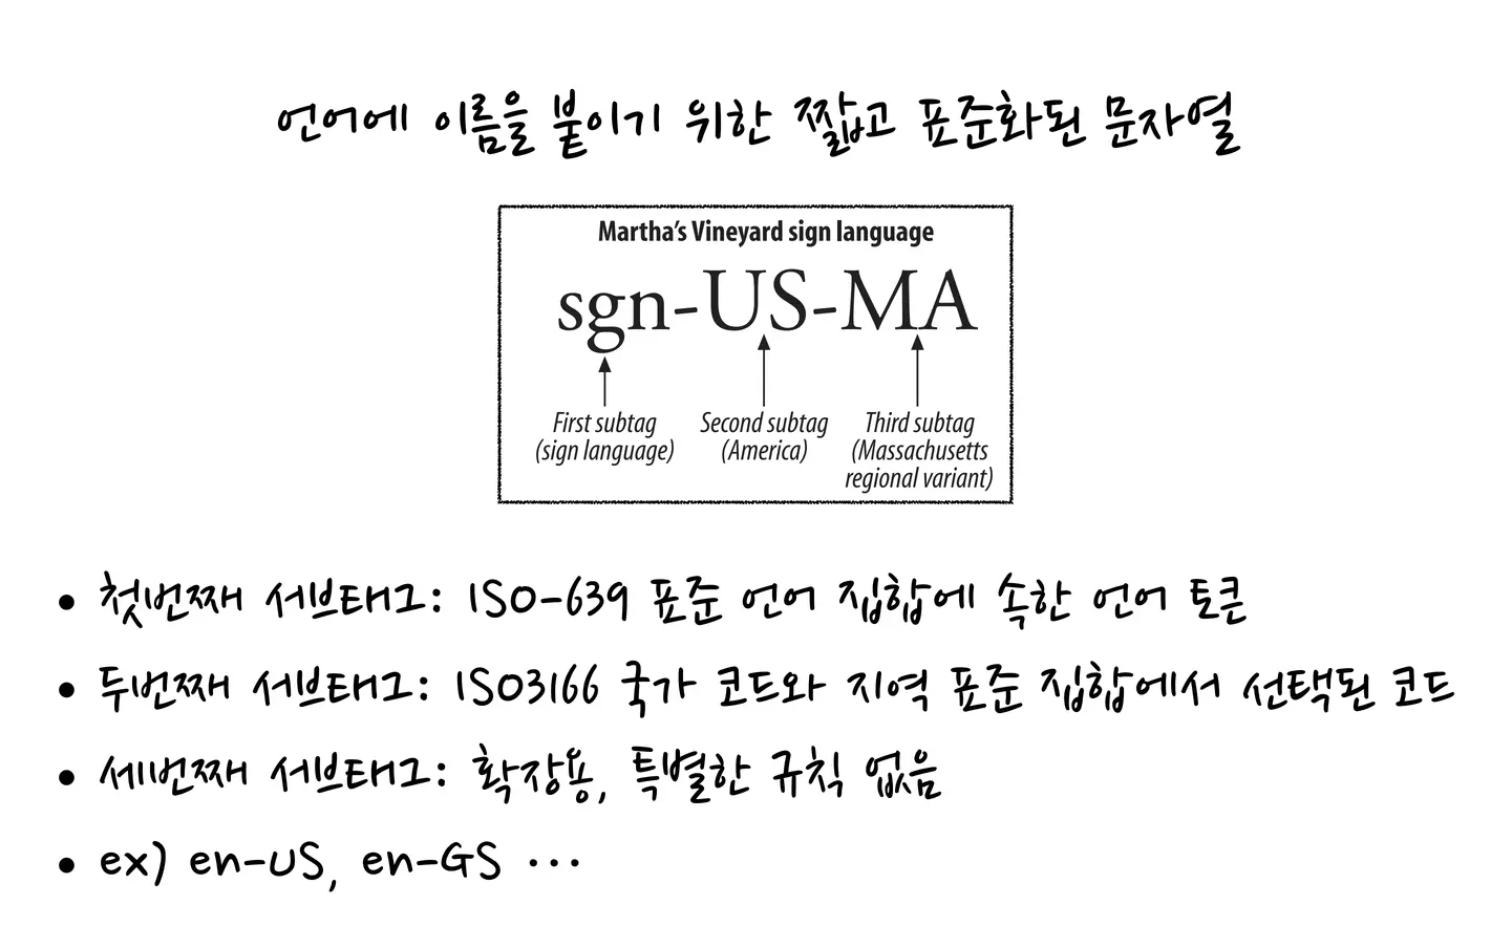 언어에 이름을 붙이기 위한 짧고 표준화된 문자열
Martha's Vineyard sign language
sgn-US-MA
First subtag (sign language)
Second subtag (America)
Third subtag (Massachusetts regional variant)
• 첫번째 서브태그: ISO-639 표준 언어 집합에 속한 언어 토큰
• 두번째 서브태그: ISO3166 국가 코드와 지역 표준 집합에서 선택된 코드
• 세번째 서브태그: 확장용, 특별한 규칙 없음
• ex) en-US, en-GS ...